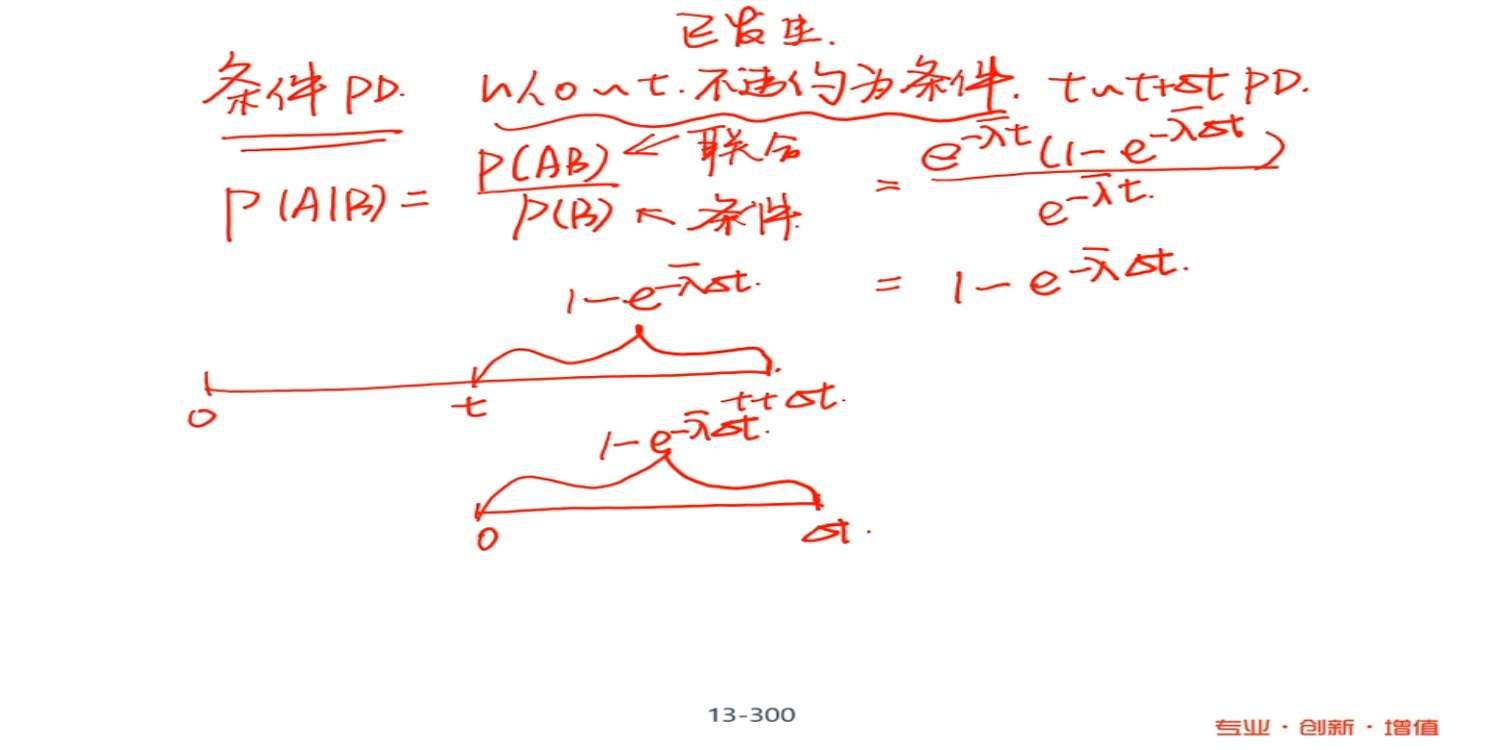 已发生.
条件PD. 以0~t.不违约为条件. t~t+Δt PD.
P(A|B) = P(AB)/P(B) ← 联合 ← 条件 = e^{-λ̄t}(1-e^{-λ̄Δt})/e^{-λ̄t}.
1-e^{-λ̄Δt}. = 1-e^{-λ̄Δt}.
0 t t+Δt.
1-e^{-λ̄Δt}.
0 Δt.
13-300
专业·创新·增值